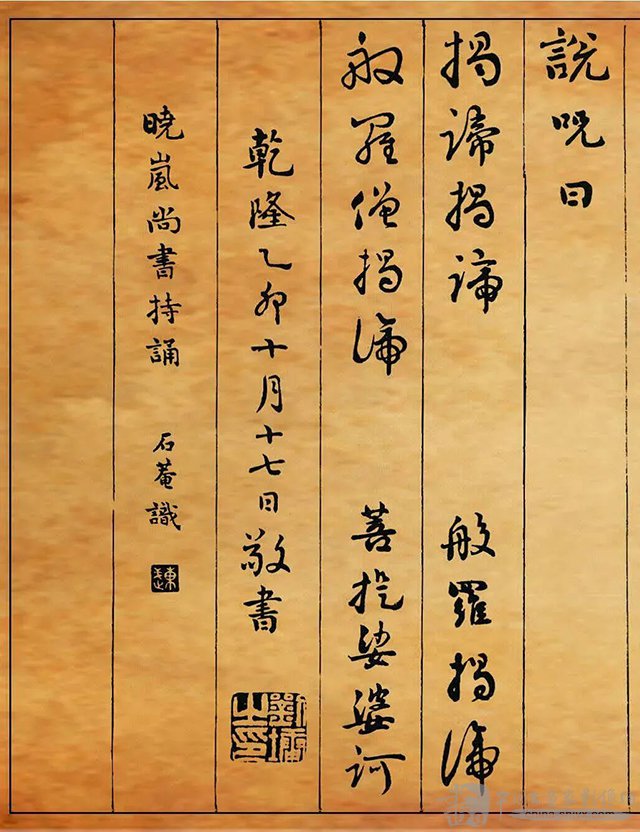 說呪曰
揭諦揭諦 般羅揭諦
般羅僧揭諦 菩提娑婆訶
乾隆乙卯十月十七日敬書
劉墉之印
曉嵐尚書持誦 石菴識